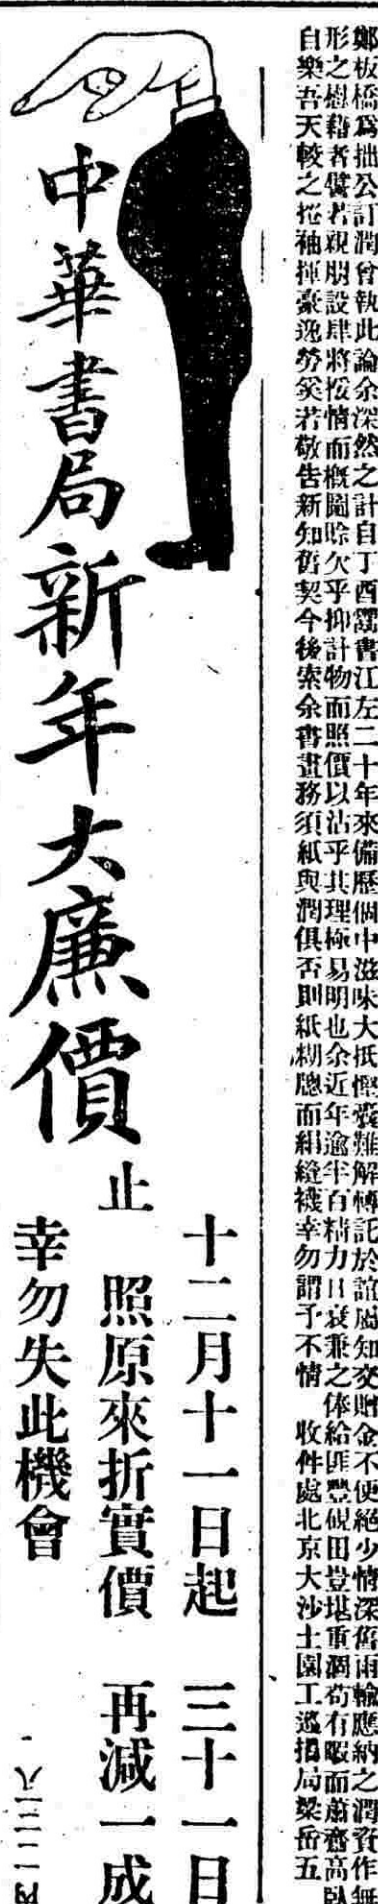 鄭板橋為拙公訂潤曾執此論余深然之計自丁酉鬻書江左二十年來備歷個中滋味大抵慳囊難解轉託於誼屬知交贈金不便絕少情深舊雨輸應納之潤資作無
形之慰藉者儗若親朋設肆將按情而概圖賒欠乎抑計物而照價以沽乎其理極易明也余近年逾半百精力日衰兼之俸給匪豐硯田豈堪重涸苟有暇而蕭齋高臥
自樂吾天較之捲袖揮豪逸勞奚若敬告新知舊契今後索余書畫務須紙與潤俱否則紙糊牕而絹縫襪幸勿謂予不情 收件處北京大沙土園工巡捐局梁岳五
中華書局新年大廉價
十二月十一日起 三十一日
止 照原來折實價 再減一成
幸勿失此機會